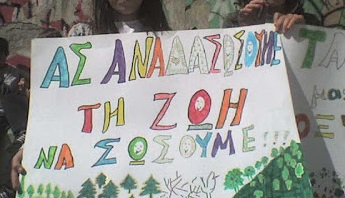 ΑΣ ΑΝΑΔΑΣΩΣΟΥΜΕ
ΤΗ ΖΩΗ
ΝΑ ΣΩΣΟΥΜΕ!!!